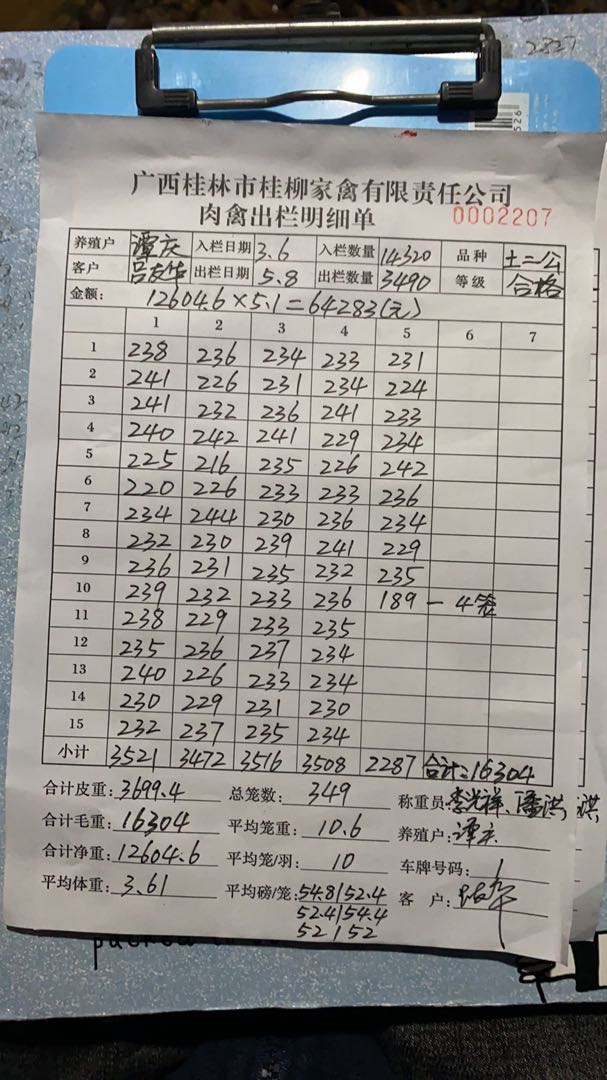 2827
526
广西桂林市桂柳家禽有限责任公司
肉禽出栏明细单 0002207
养殖户 谭庆 入栏日期 3.6 入栏数量 14320 品种 土二公
客户 吕志华 出栏日期 5.8 出栏数量 3490 等级 合格
金额: 12604.6×5.1=64283(元)
1 2 3 4 5 6 7
1 238 236 234 233 231
2 241 226 231 234 224
3 241 232 236 241 233
4 240 242 241 229 234
5 225 216 235 226 242
6 220 226 233 233 236
7 234 244 230 236 234
8 232 230 239 241 229
9 236 231 235 232 235
10 239 232 233 236 189 — 4笼
11 238 229 233 235
12 235 236 237 234
13 240 226 233 234
14 230 229 231 230
15 232 237 235 234
小计 3521 3472 3516 3508 2287 合计:16304
合计皮重: 3699.4 总笼数: 349 称重员: 李光祥、潘洪洪
合计毛重: 16304 平均笼重: 10.6 养殖户: 谭庆
合计净重: 12604.6 平均笼/羽: 10 车牌号码: 1
平均体重: 3.61 平均磅/笼: 54.8/52.4 客户:
52.4/54.4
52/52